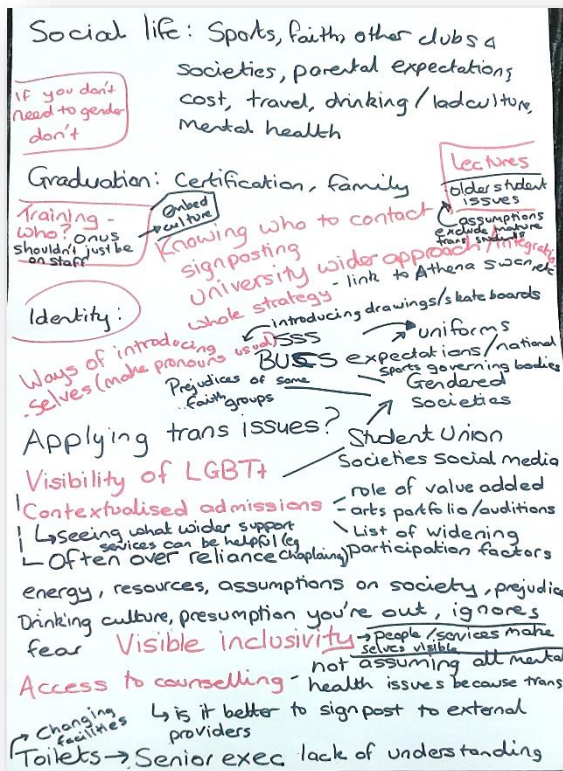 Social life: Sports, faith, other clubs &
societies, parental expectations,
cost, travel, drinking / lad culture,
mental health
If you don't
need to gender
don't
Graduation: Certification, family
Lectures
older student
issues
assumptions
exclude mature
trans students
Training -
who? onus
shouldn't just be
on staff
embed
culture
Knowing who to contact
signposting
university wider approach / integration
whole strategy - link to Athena Swan, etc
Identity:
introducing drawings/skateboards
Ways of introducing
selves (make pronouns usual)
SSS
BUCS expectations/national
sports governing bodies
uniforms
Prejudices of some
faith groups
Gendered
societies
Applying trans issues?
Student Union
Societies social media
Visibility of LGBT+
Contextualised admissions
- role of value added
- arts portfolio/auditions
List of widening
participation factors
Seeing what wider support
sevices can be helpful (eg
Chaplaincy)
Often over reliance
energy, resources, assumptions on society, prejudice
Drinking culture, presumption you're out, ignores
fear
Visible inclusivity → people/services make
selves visible
Access to counselling - not assuming all mental
health issues because trans
↳ is it better to signpost to external
providers
Changing
facilities
Toilets → Senior exec lack of understanding